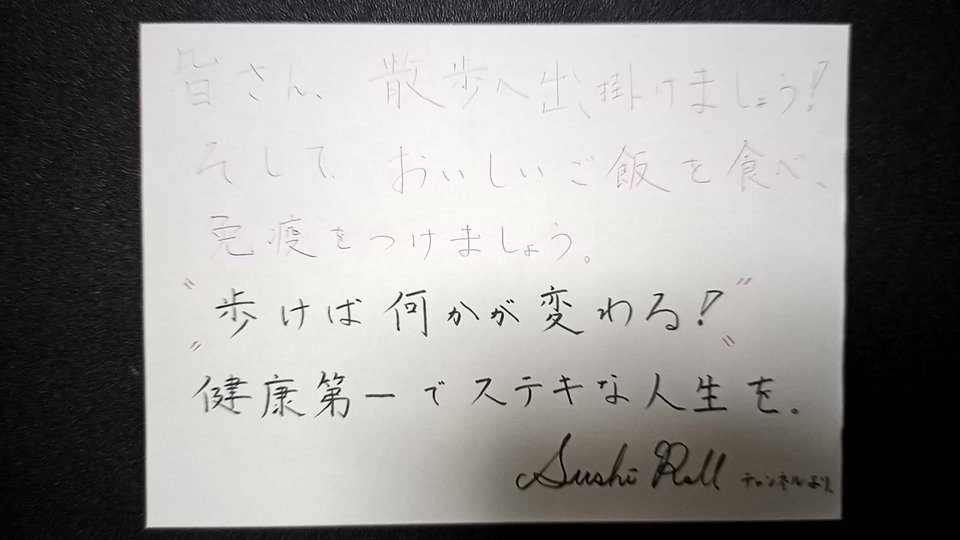 皆さん、散歩へ出掛けましょう!
そして、おいしいご飯を食べ、
免疫をつけましょう。
"歩けば何かが変わる!"
健康第一でステキな人生を。
Sushi Roll チャンネルより